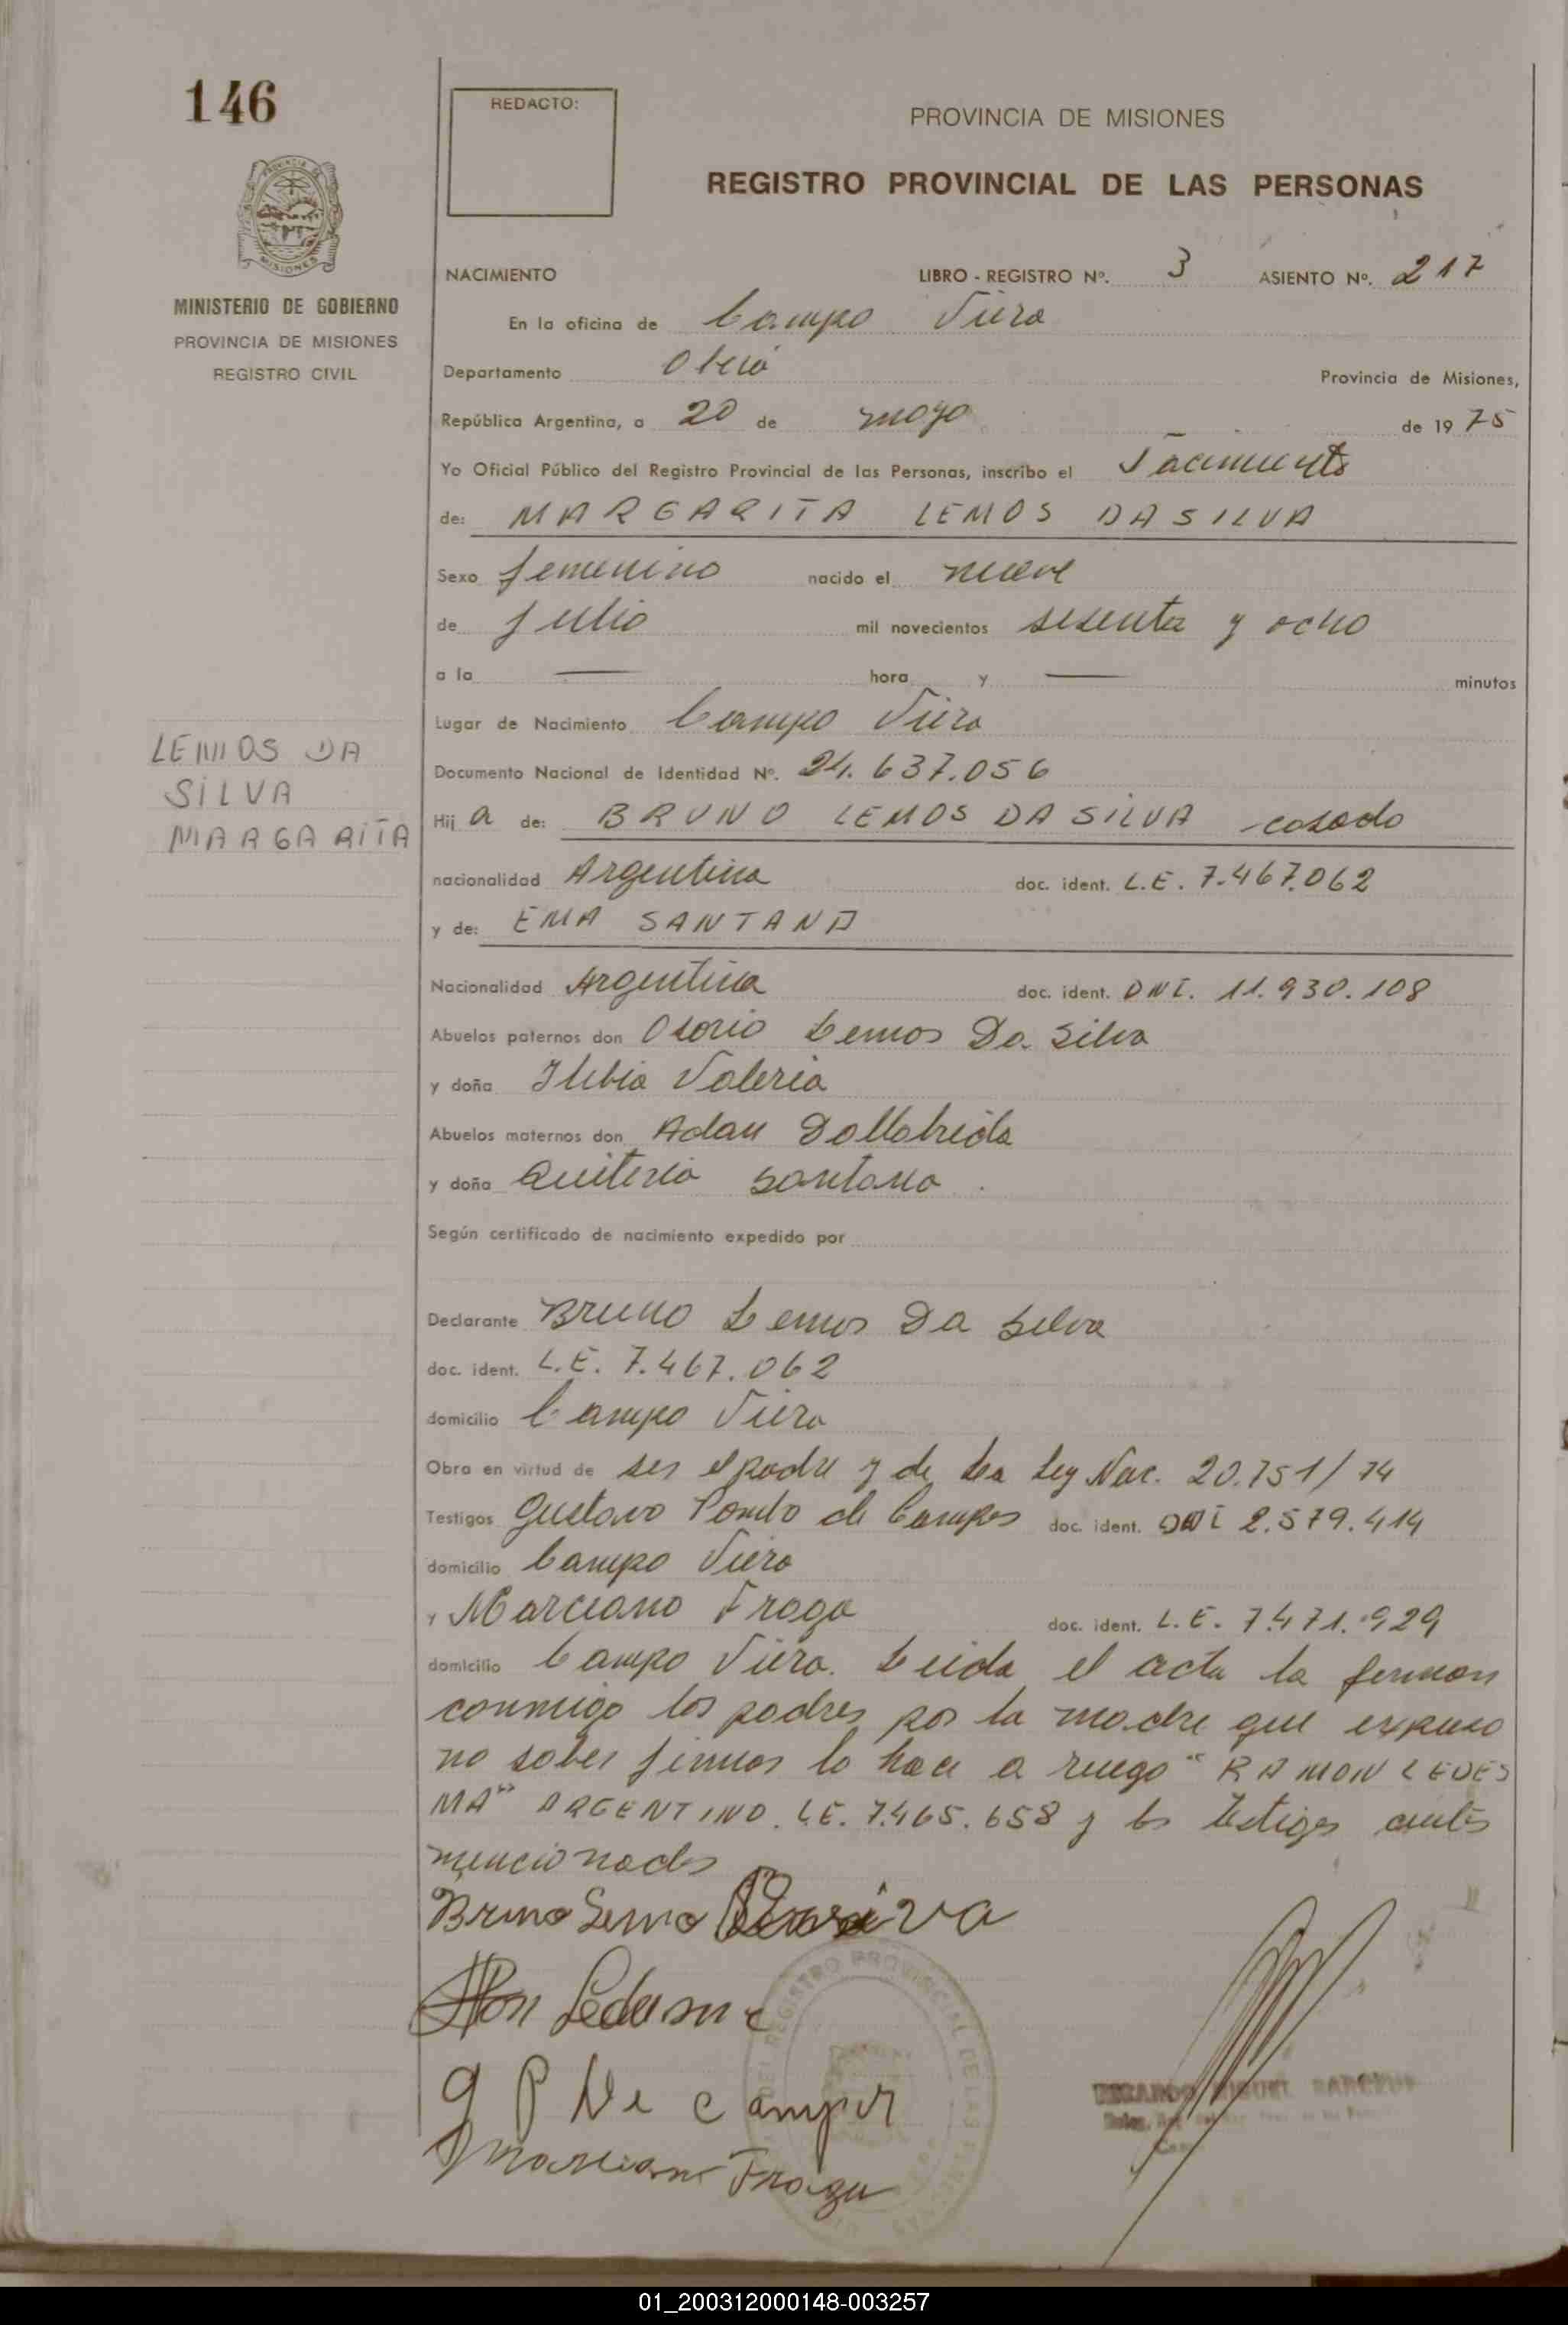 146
REDACTO:
PROVINCIA DE MISIONES
REGISTRO PROVINCIAL DE LAS PERSONAS
MISIONES
MINISTERIO DE GOBIERNO
PROVINCIA DE MISIONES
REGISTRO CIVIL
NACIMIENTO LIBRO - REGISTRO Nº. 3 ASIENTO Nº. 217
En la oficina de Campo Viera
Departamento Oberá Provincia de Misiones,
República Argentina, a 20 de mayo de 1975
Yo Oficial Público del Registro Provincial de las Personas, inscribo el Nacimiento
de: MARGARITA LEMOS DA SILVA
Sexo femenino nacido el nueve
de julio mil novecientos sesenta y ocho
a la — hora y — minutos
Lugar de Nacimiento Campo Viera
LEMOS DA
SILVA
MARGARITA
Documento Nacional de Identidad Nº. 24.637.056
Hij a de: BRUNO LEMOS DA SILVA - casado
nacionalidad Argentina doc. ident. L.E. 7.467.062
y de: EMA SANTANA
Nacionalidad Argentina doc. ident. DNI. 11.930.108
Abuelos paternos don Osorio Lemos Da Silva
y doña Valeria
Abuelos maternos don Adan Dallabrida
y doña Quiteria Santana.
Según certificado de nacimiento expedido por
Declarante Bruno Lemos Da Silva
doc. ident. L.E. 7.467.062
domicilio Campo Viera
Obra en virtud de ser el padre y de la Ley Nac. 20.751/74
Testigos Gustavo Pombo de Campos doc. ident. DNI 2.579.414
domicilio Campo Viera
y Marciano Fraga doc. ident. L.E. 7.471.929
domicilio Campo Viera. Leida el acta la firman
conmigo los padres por la madre que expuso
no saber firmar lo hace a ruego "RAMON LEDES
MA" ARGENTINO. L.E. 7.465.658 y los testigos antes
mencionados
Bruno Lemo
Ledesma
G P De Campos
Marciano Fraga
REGISTRO PROVINCIAL DE LAS
MIGUEL
01_200312000148-003257